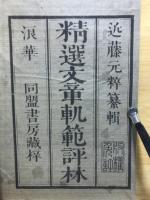 近藤元粋纂輯
精選文章軌範評林
浪華 同盟書房蔵梓